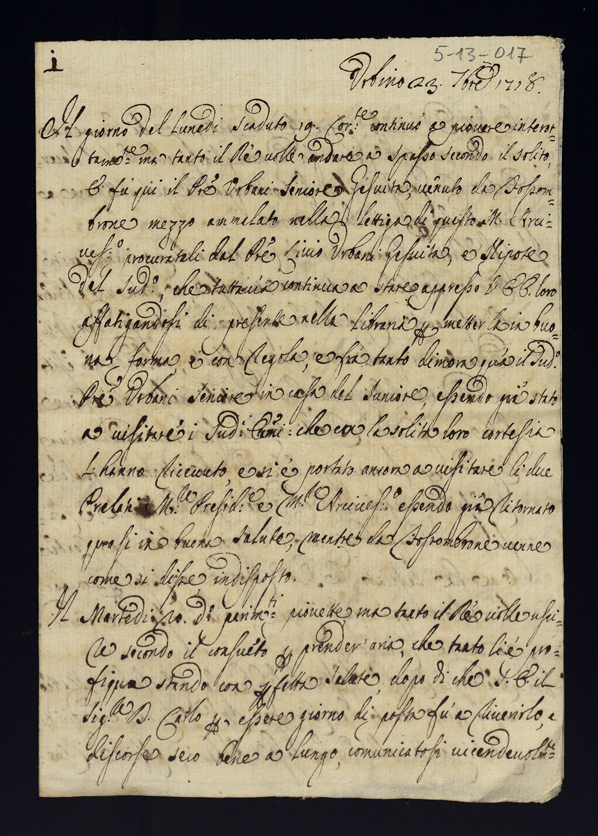 5-13-017
1
Urbino 23. 7bre 1718.
Il giorno del Lunedi scaduto 19. Corte continuò a piovere interot=
tamte ma tanto il Rè volle andare a spasso secondo il solito,
E fù qui il Pre Urbani Seniore Gesuita, venuto da Fossom=
brone mezzo ammalato nella lettiga di questo M. Arci=
vesco, procuratali dal Pre Livio Urbani Gesuita, e Nipote
del Sudo, che tuttavia continua a stare appresso l' EE loro
affatigandosi di presente nella libraria p metterla in buo=
na forma e con Regola, e frà tanto dimora quà il Sudo
Pre Urbani Seniore in casa del Juniore, essendo già stato
a visitare i Sudi che con la solita loro cortessia
L' hanno Riceuuto, e si è portato ancora a visitare li due
Prelati Mr Preside e Mr Arcivesco essendo già Ritornato
quasi in buona Salute, mentre da Fossombrone venne
come si disse indisposto.
Il Martedi 20. Do parimti piovette, ma tanto il Rè volle usci=
re secondo il consueto p prender' aria, che tanto li è pro=
figua stando con pfetta salute, dopo di che S. E il
Sigre D. Carlo p essere giorno di posta fù a Riverirlo, e
discorse seco bene a Lungo, comunicatosi vicendevolmte